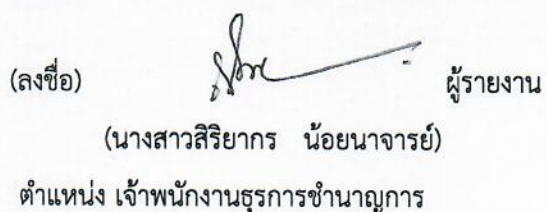 (ลงชื่อ) ผู้รายงาน
(นางสาวสิริยากร น้อยนาจารย์)
ตำแหน่ง เจ้าพนักงานธุรการชำนาญการ